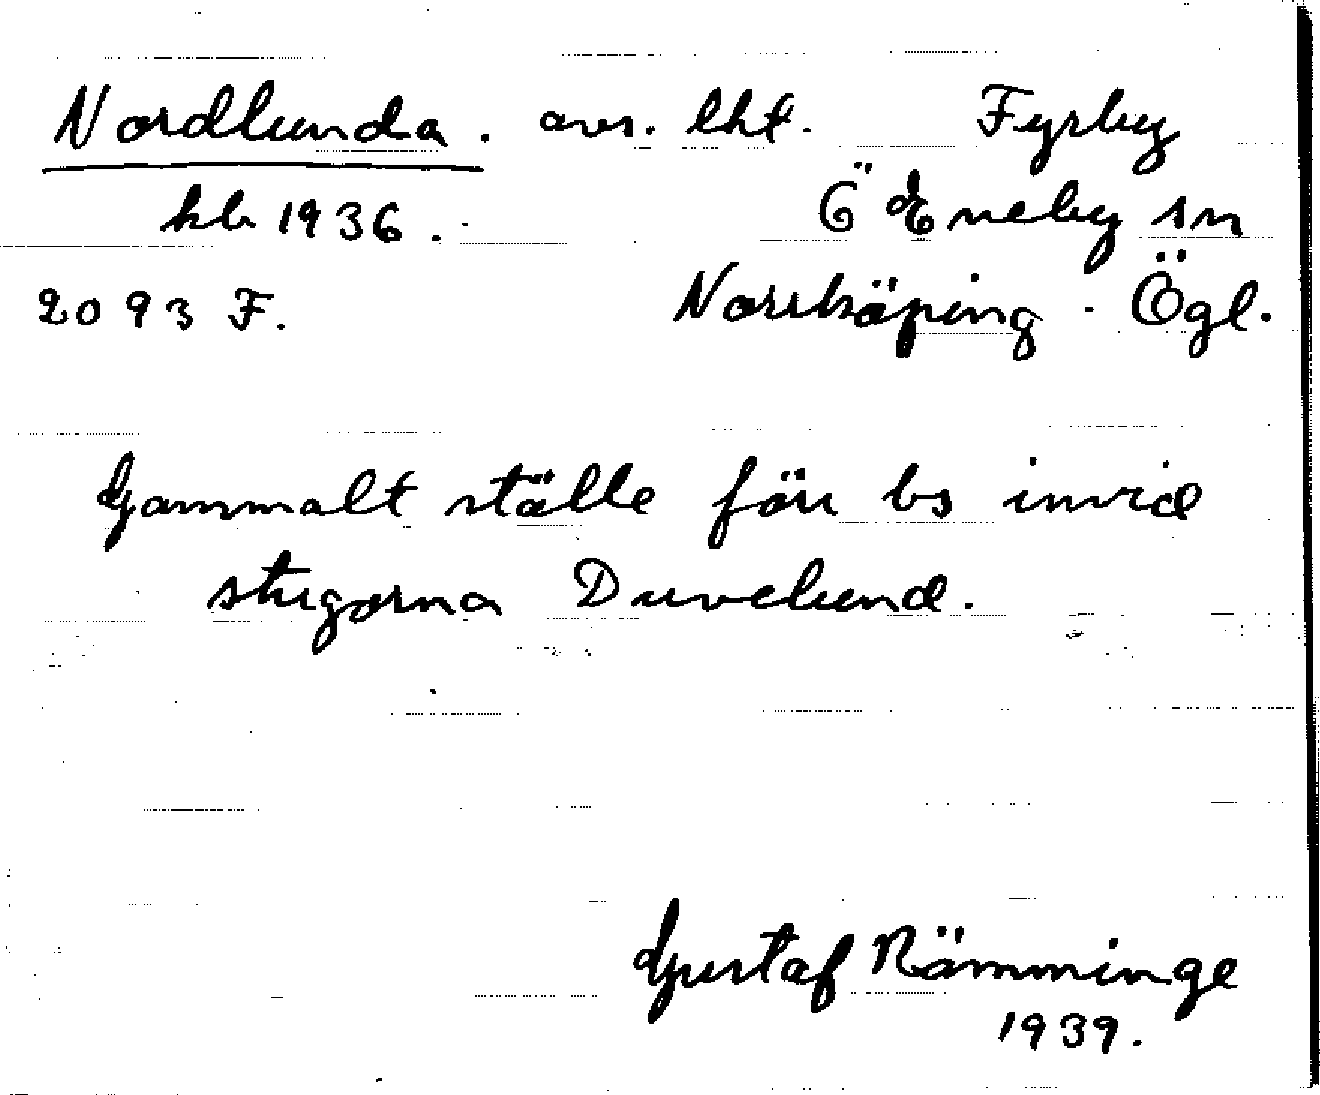 Nordlunda. avs. lht. Fyrby
kb 1936. Ö Eneby sn
2093 F. Norrköping - Ögl.
Gammalt ställe förr bs invid
stugorna Duvelund.
Gustaf Rämminge
1939.